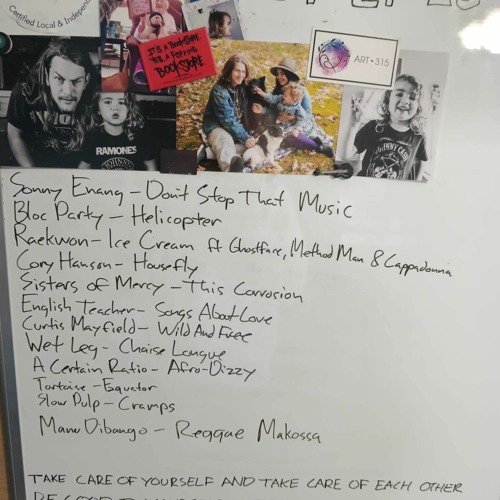 Certified Local & Independ
IT'S A BOOKSTORE
BOOKSTORE
ART • 315
RAMONES
JOHNNY CASH
Sonny Enang - Don't Stop That Music
Bloc Party - Helicopter
Raekwon - Ice Cream ft Ghostface, Method Man & Cappadonna
Cory Hanson - Housefly
Sisters of Mercy - This Corrosion
English Teacher - Songs About Love
Curtis Mayfield - Wild And Free
Wet Leg - Chaise Longue
A Certain Ratio - Afro-Dizzy
Tortoise - Equator
Slow Pulp - Cramps
Manu Dibango - Reggae Makossa
TAKE CARE OF YOURSELF AND TAKE CARE OF EACH OTHER
BE GOOD